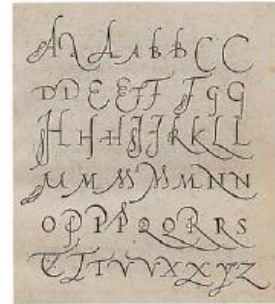 A A A A b b C C
D D E E F F G G
H H H I J K K L L
M M M M M N N
O P P P Q Q R R S
T T T V V X X Y Z